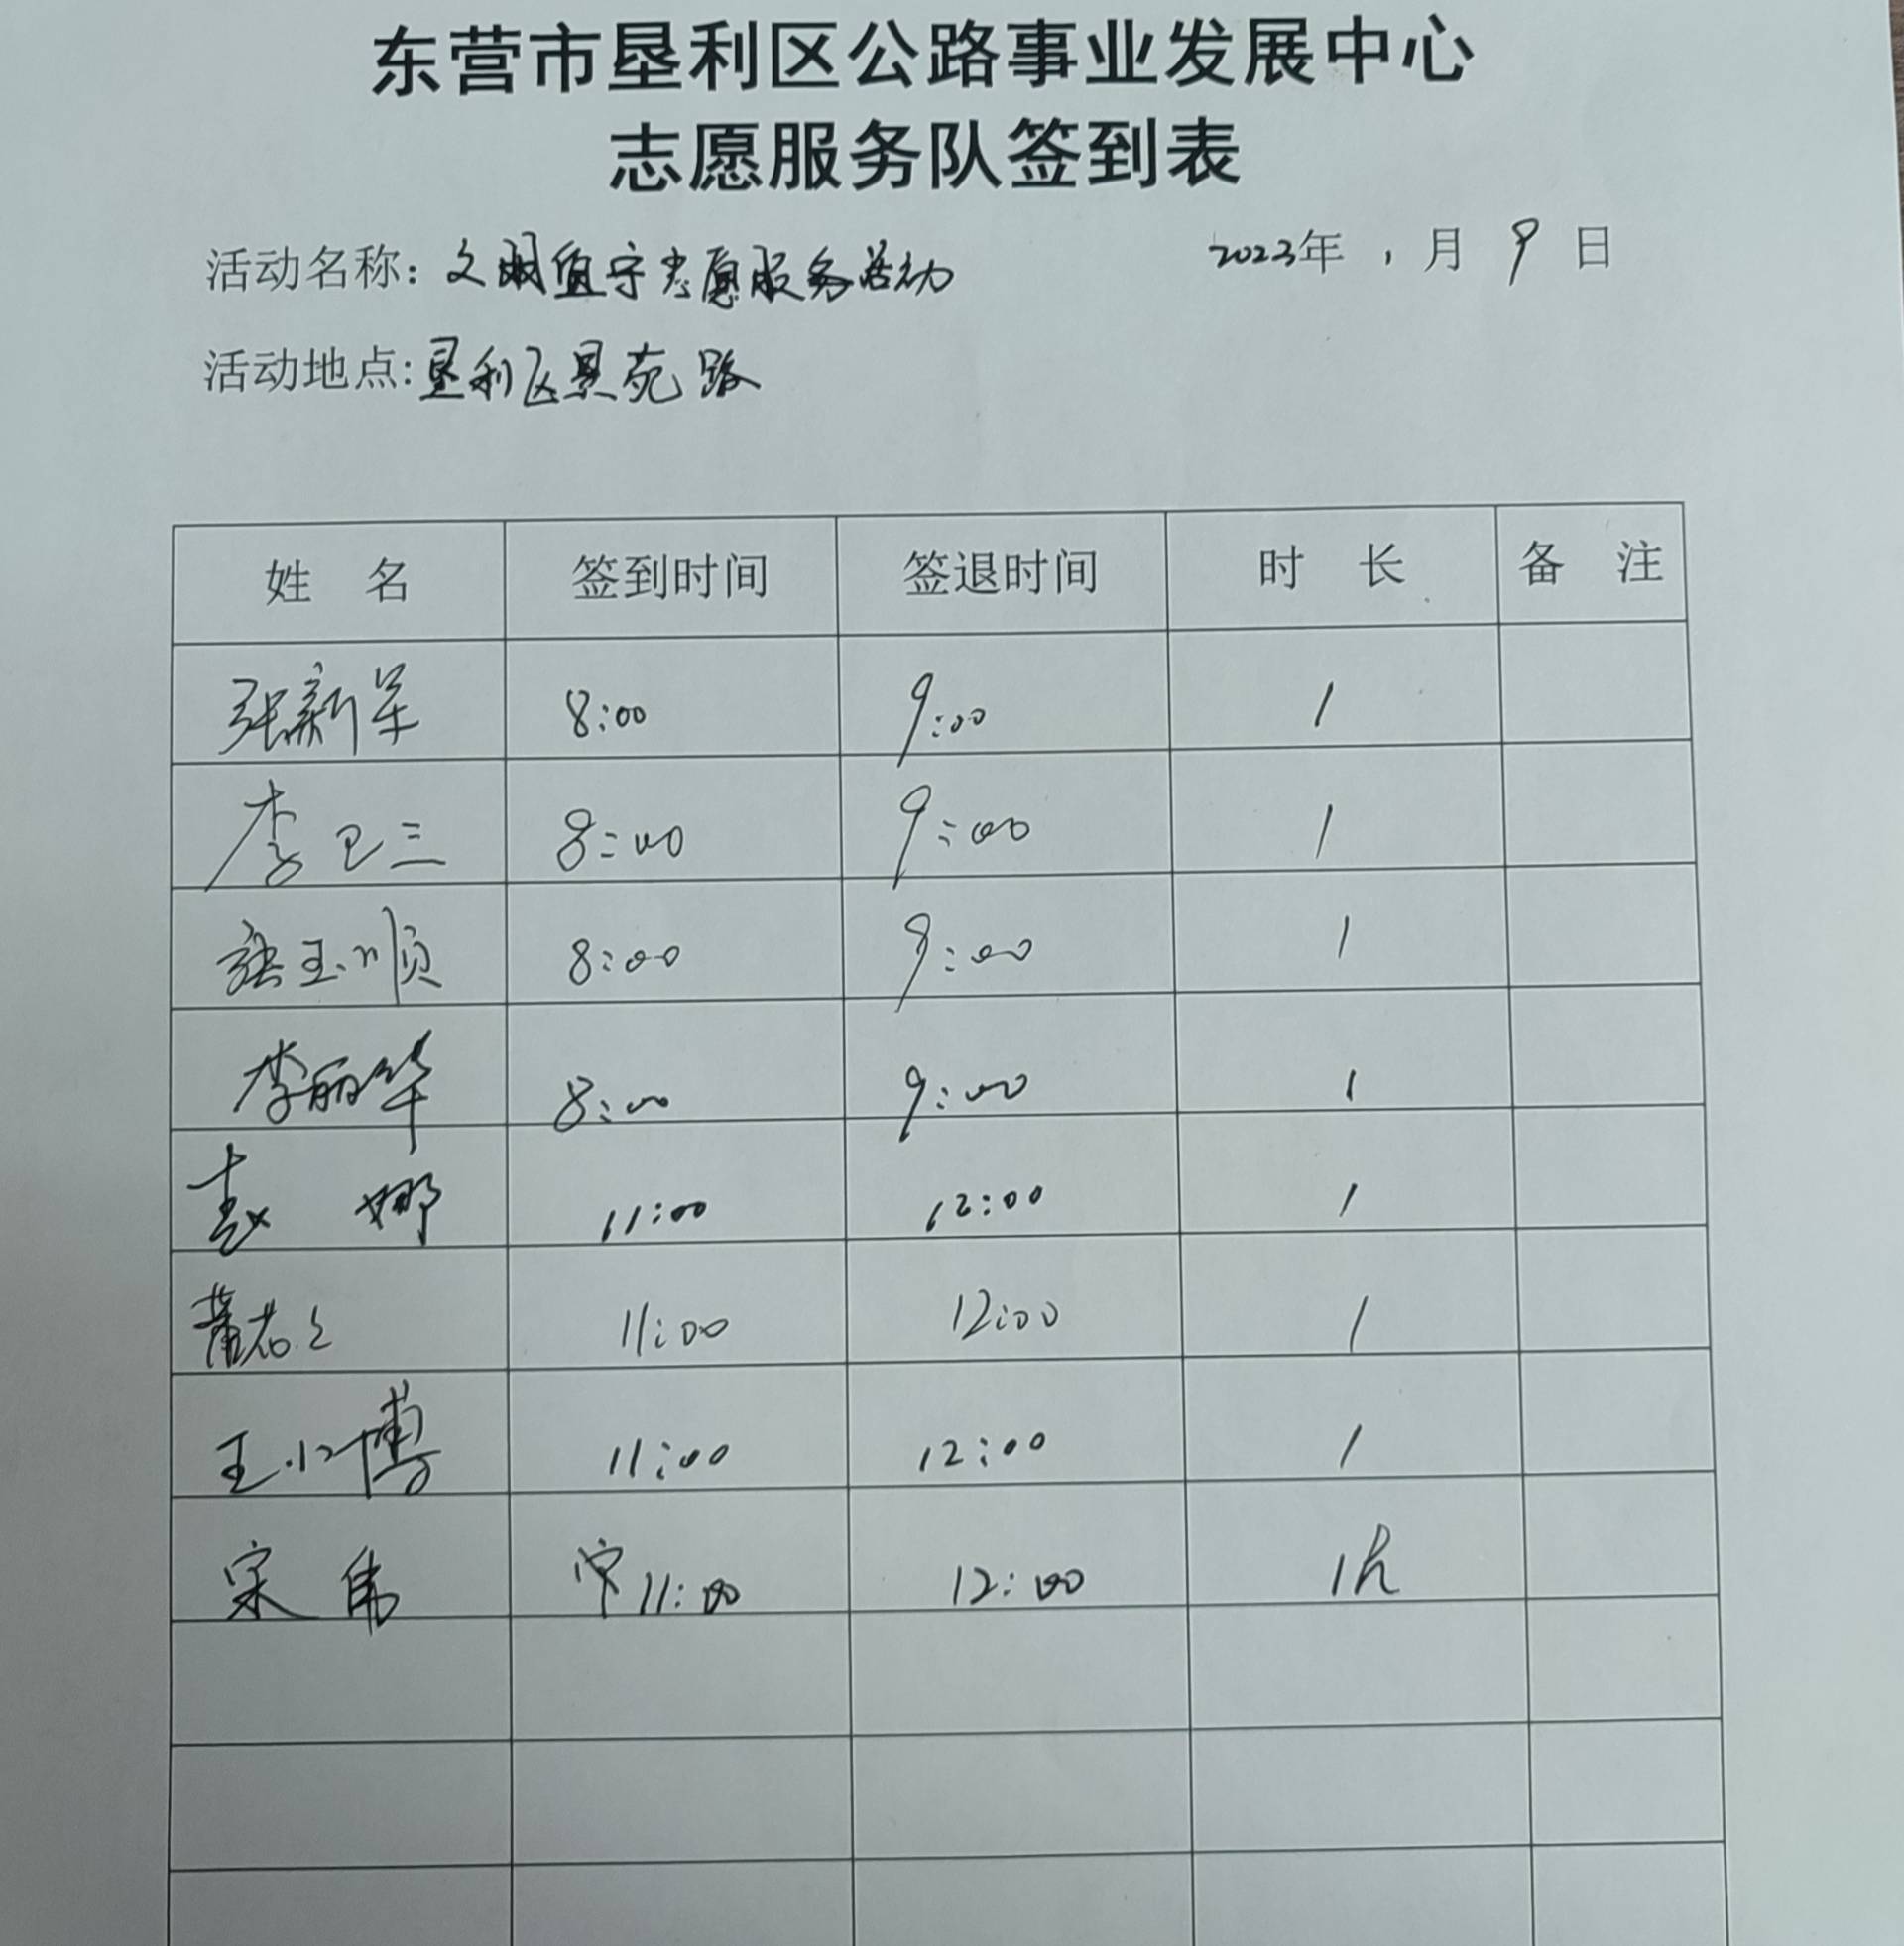 东营市垦利区公路事业发展中心
志愿服务队签到表
活动名称：文明值守志愿服务活动 2023年 1 月 9 日
活动地点:垦利区景苑路
姓 名 签到时间 签退时间 时 长 备 注
张新军 8:00 9:00 1
李卫三 8:00 9:00 1
张玉顺 8:00 9:00 1
李丽华 8:00 9:00 1
赵 娜 11:00 12:00 1
11:00 12:00 1
王小博 11:00 12:00 1
宋 伟 11:00 12:00 1h